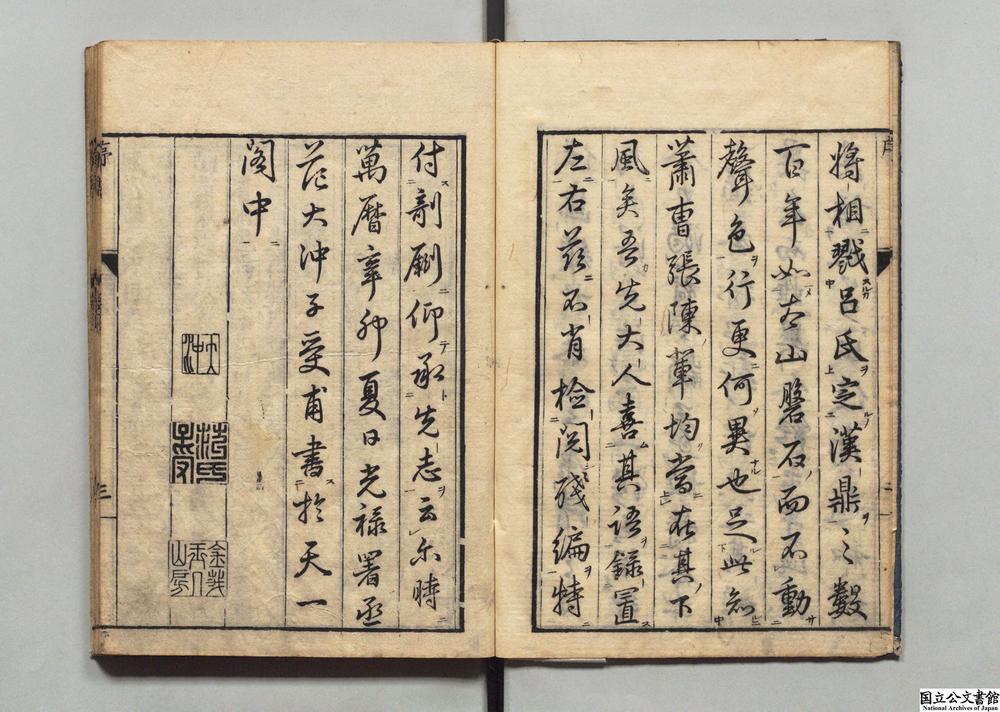 將相戮呂氏定漢鼎〻數
百年如太山磐石而不動
聲色行更何異也足此知
蕭曹張陳輩均當在其下
風矣吾先大人喜其語錄置
左右茲不肖檢閱殘編特
付剞劂仰承先志云尒時
萬曆辛卯夏日光祿署丞
范大沖子受甫書於天一
閣中
大沖
范氏子受
三
国立公文書館
National Archives of Japan